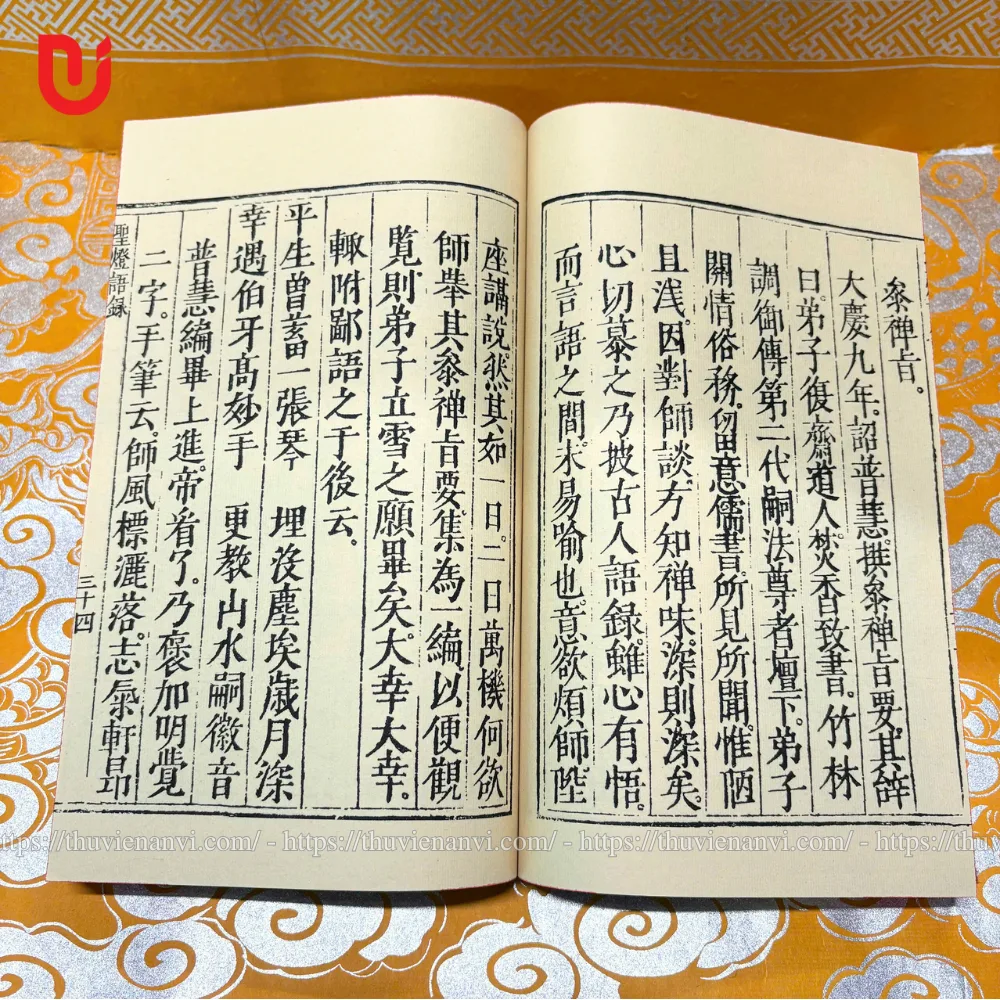 叅禅旨。
大慶九年。詔普慧撰叅禅旨要。其辞
曰。弟子復齋道人焚香致書。竹林
調御傳第二代嗣法尊者壇下。弟子
關情俗務。留意儒書。所見所聞。惟陋
且浅。因對師談。方知禅味深則深矣。
心切慕之。乃披古人語録。雖心有悟。
而言語之間。未易喻也。意欲煩師陞
座講説。然其如一日。二日萬機何。欲
師举其叅禅旨要。集為一編。以便觀
覧。則弟子立雪之願畢矣。大幸大幸。
輙附鄙語之于後云。
平生曽蓄一張琴 埋没塵埃歳月深
幸遇伯牙髙妙手 更教山水嗣徽音
普慧編畢上進。帝看了。乃褒加明覺
二字。手筆云。師風標灑落。志氣軒昂
聖燈語録
三十四
https://thuvienanvi.com/ - https://thuvienanvi.com/ - https://thuvienanvi.com/